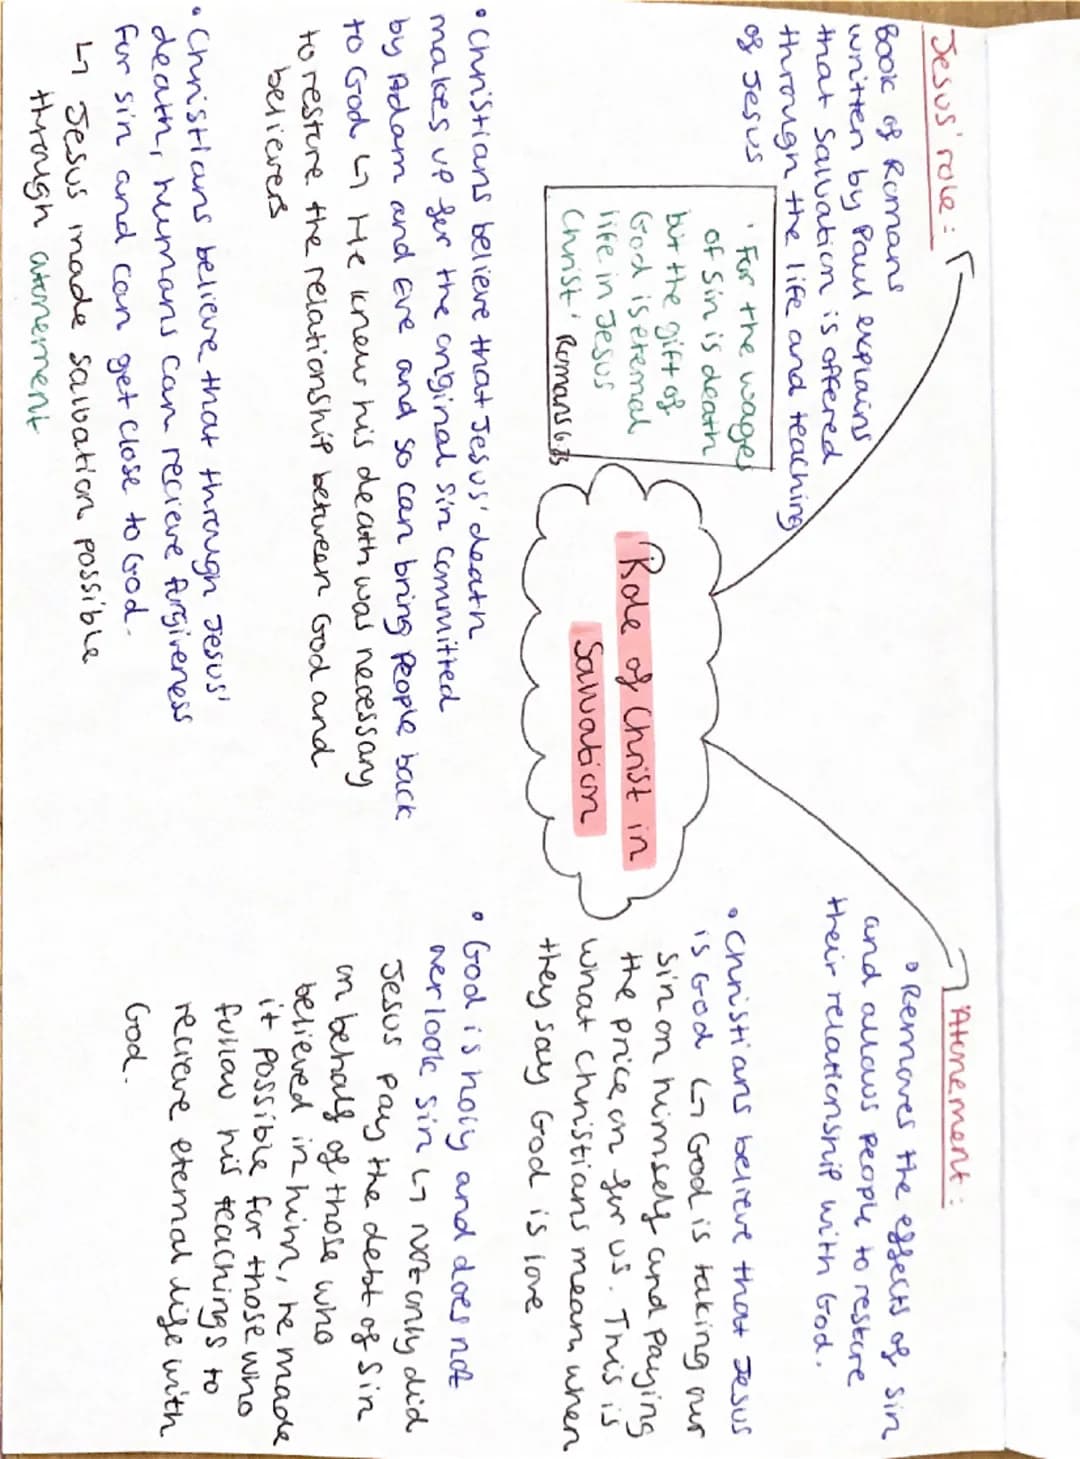 Role of Christ in
Salvation
Jesus' role:
Book of Romans
written by Paul explains
that salvation is offered
through the life and teaching
of Jesus
'For the wages
of sin is death
but the gift of
God is eternal
life in Jesus
Christ' Romans 6:23
• Christians believe that Jesus' death
makes up for the original sin committed
by Adam and Eve and so can bring people back
to God ↳ He knew his death was necessary
to restore the relationship between God and
believers
• Christians believe that through Jesus'
death, humans can recieve forgiveness
for sin and can get close to God.
↳ Jesus made salvation possible
through atonement
Atonement:
• Removes the effects of sin
and allows people to restore
their relationship with God.
• Christians believe that Jesus
is God ↳ God is taking our
sin on himself and paying
the price on for us. This is
what Christians mean when
they say God is love
• God is holy and does not
overlook sin ↳ not only did
Jesus pay the debt of sin
on behalf of those who
believed in him, he made
it possible for those who
follow his teachings to
recieve eternal life with
God.